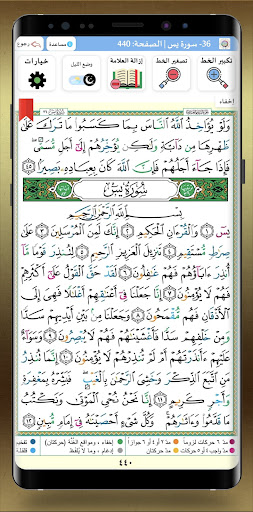 36- سورة يس | الصفحة: 440
مساعدة
رجوع
تكبير الخط
تصغير الخط
إزالة العلامة
وضع الليل
خيارات
إخفاء
وَلَوْ يُؤَاخِذُ اللَّهُ النَّاسَ بِمَا كَسَبُوا مَا تَرَكَ عَلَىٰ
ظَهْرِهَا مِن دَابَّةٍ وَلَٰكِن يُؤَخِّرُهُمْ إِلَىٰ أَجَلٍ مُّسَمًّى
فَإِذَا جَاءَ أَجَلُهُمْ فَإِنَّ اللَّهَ كَانَ بِعِبَادِهِ بَصِيرًا ٤٥
سُورَةُ يسٓ
بِسْمِ اللَّهِ الرَّحْمَٰنِ الرَّحِيمِ
يسٓ ١ وَالْقُرْآنِ الْحَكِيمِ ٢ إِنَّكَ لَمِنَ الْمُرْسَلِينَ ٣ عَلَىٰ
صِرَاطٍ مُّسْتَقِيمٍ ٤ تَنزِيلَ الْعَزِيزِ الرَّحِيمِ ٥ لِتُنذِرَ قَوْمًا مَّا
أُنذِرَ آبَاؤُهُمْ فَهُمْ غَافِلُونَ ٦ لَقَدْ حَقَّ الْقَوْلُ عَلَىٰ أَكْثَرِهِمْ
فَهُمْ لَا يُؤْمِنُونَ ٧ إِنَّا جَعَلْنَا فِي أَعْنَاقِهِمْ أَغْلَالًا فَهِيَ إِلَى
الْأَذْقَانِ فَهُم مُّقْمَحُونَ ٨ وَجَعَلْنَا مِن بَيْنِ أَيْدِيهِمْ سَدًّا
وَمِنْ خَلْفِهِمْ سَدًّا فَأَغْشَيْنَاهُمْ فَهُمْ لَا يُبْصِرُونَ ٩ وَسَوَاءٌ
عَلَيْهِمْ أَأَنذَرْتَهُمْ أَمْ لَمْ تُنذِرْهُمْ لَا يُؤْمِنُونَ ١٠ إِنَّمَا تُنذِرُ
مَنِ اتَّبَعَ الذِّكْرَ وَخَشِيَ الرَّحْمَٰنَ بِالْغَيْبِ فَبَشِّرْهُ بِمَغْفِرَةٍ
وَأَجْرٍ كَرِيمٍ ١١ إِنَّا نَحْنُ نُحْيِي الْمَوْتَىٰ وَنَكْتُبُ
مَا قَدَّمُوا وَآثَارَهُمْ وَكُلَّ شَيْءٍ أَحْصَيْنَاهُ فِي إِمَامٍ مُّبِينٍ ١٢
مدّ ٦ حركات لزوماً مدّ ٢ أو ٤ أو ٦ جوازاً إخفاء، ومواقع الغُنّة (حركتان) تفخيم
مدّ حركتان إدغام، وما لا يُلفظ
٤٤٠